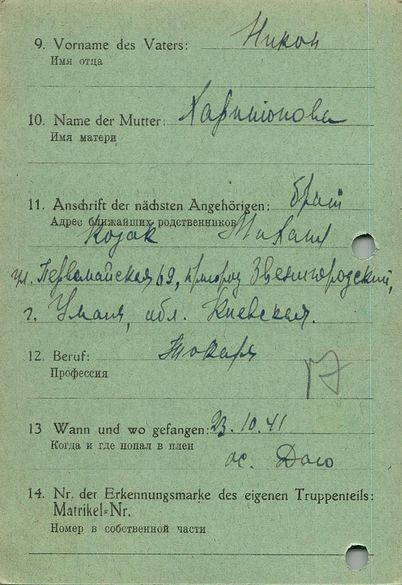 9. Vorname des Vaters: Никон
Имя отца
10. Name der Mutter: Харитонова
Имя матери
11. Anschrift der nächsten Angehörigen: брат
Адрес ближайших родственников
Козак Михаил
ул. Первомайская 69, пригород Звенигородский,
г. Умань, обл. Киевская.
12. Beruf: Токарь
Профессия
13 Wann und wo gefangen: 23.10.41
Когда и где попал в плен
ос. Даго
14. Nr. der Erkennungsmarke des eigenen Truppenteils:
Matrikel=Nr.
Номер в собственной части